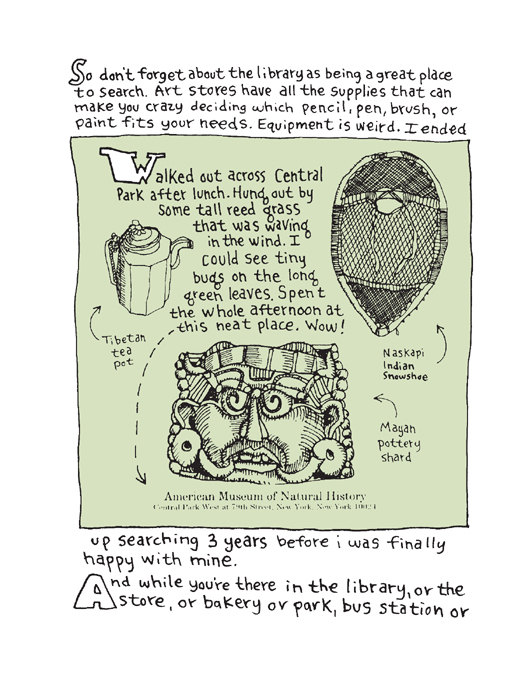 So don't forget about the library as being a great place
to search. Art stores have all the supplies that can
make you crazy deciding which pencil, pen, brush, or
paint fits your needs. Equipment is weird. I ended
Walked out across Central
Park after lunch. Hung out by
some tall reed grass
that was waving
in the wind. I
could see tiny
bugs on the long
green leaves. Spent
the whole afternoon at
this neat place. Wow!
Tibetan
tea
pot
Naskapi
Indian
Snowshoe
Mayan
pottery
shard
American Museum of Natural History
Central Park West at 79th Street, New York, New York 10024
up searching 3 years before i was finally
happy with mine.
And while you're there in the library, or the
store, or bakery or park, bus station or